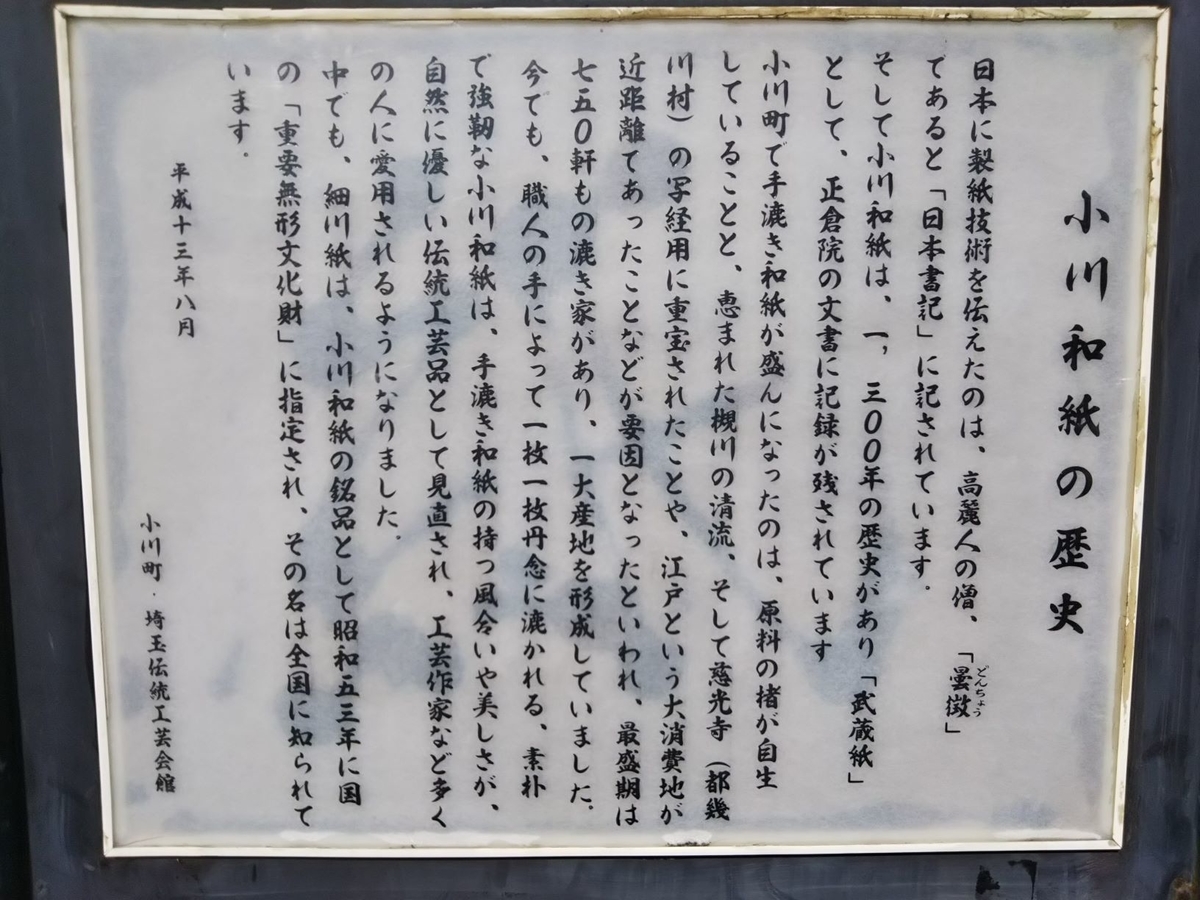 小川和紙の歴史
日本に製紙技術を伝えたのは、高麗人の僧、「曇徴」
どんちょう
であると「日本書記」に記されています。
そして小川和紙は、一，三００年の歴史があり「武蔵紙」
として、正倉院の文書に記録が残されています
小川町で手漉き和紙が盛んになったのは、原料の楮が自生
していることと、恵まれた槻川の清流、そして慈光寺（都幾
川村）の写経用に重宝されたことや、江戸という大消費地が
近距離であったことなどが要因となったといわれ、最盛期は
七五０軒もの漉き家があり、一大産地を形成していました。
今でも、職人の手によって一枚一枚丹念に漉かれる、素朴
で強靭な小川和紙は、手漉き和紙の持つ風合いや美しさが、
自然に優しい伝統工芸品として見直され、工芸作家など多く
の人に愛用されるようになりました。
中でも、細川紙は、小川和紙の銘品として昭和五三年に国
の「重要無形文化財」に指定され、その名は全国に知られて
います。
平成十三年八月
小川町・埼玉伝統工芸会館